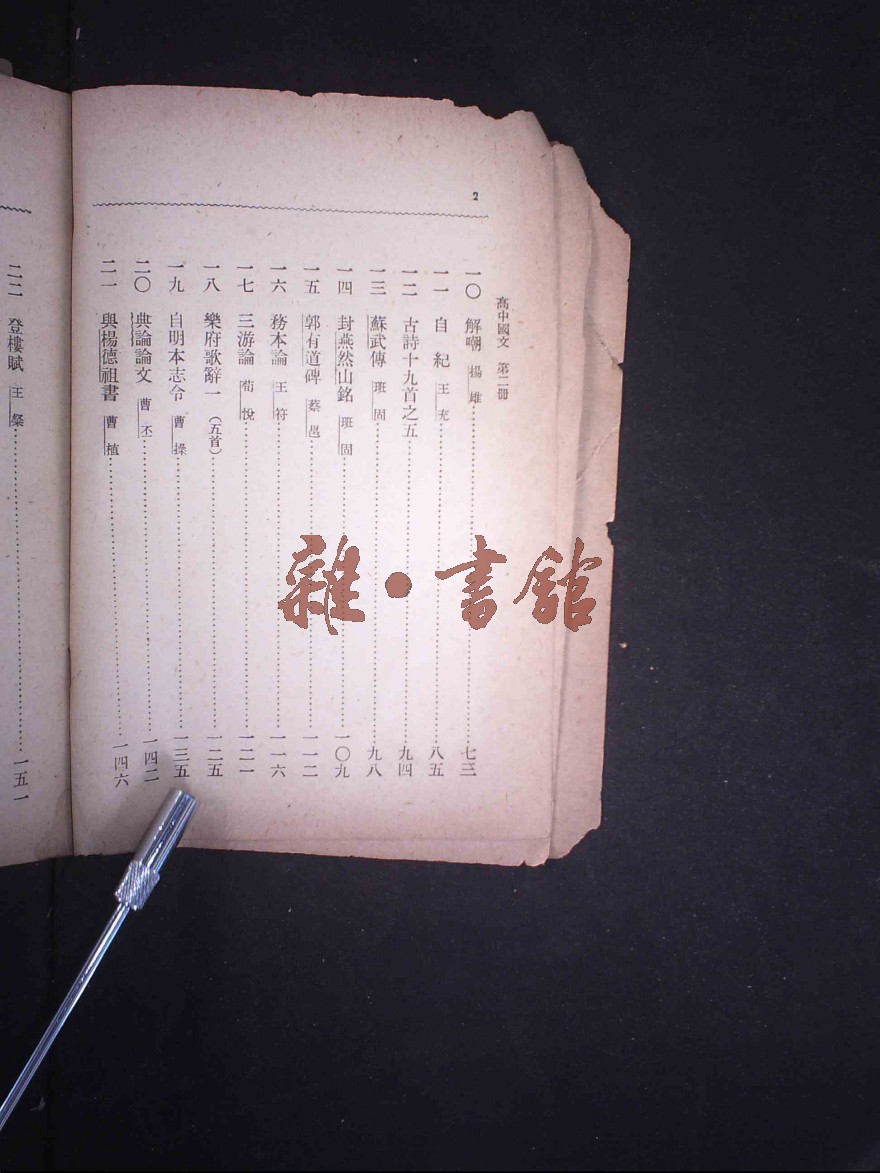 2
高中國文 第二冊
一〇 解嘲 揚雄 七三
一一 自紀 王充 八五
一二 古詩十九首之五 九四
一三 蘇武傳 班固 九八
一四 封燕然山銘 班固 一〇九
一五 郭有道碑 蔡邕 一一二
一六 務本論 王符 一一六
一七 三游論 荀悅 一二一
一八 樂府歌辭一(五首) 一二五
一九 自明本志令 曹操 一三五
二〇 典論論文 曹丕 一四二
二一 與楊德祖書 曹植 一四六
二二 登樓賦 王粲 一五一
雜·書館